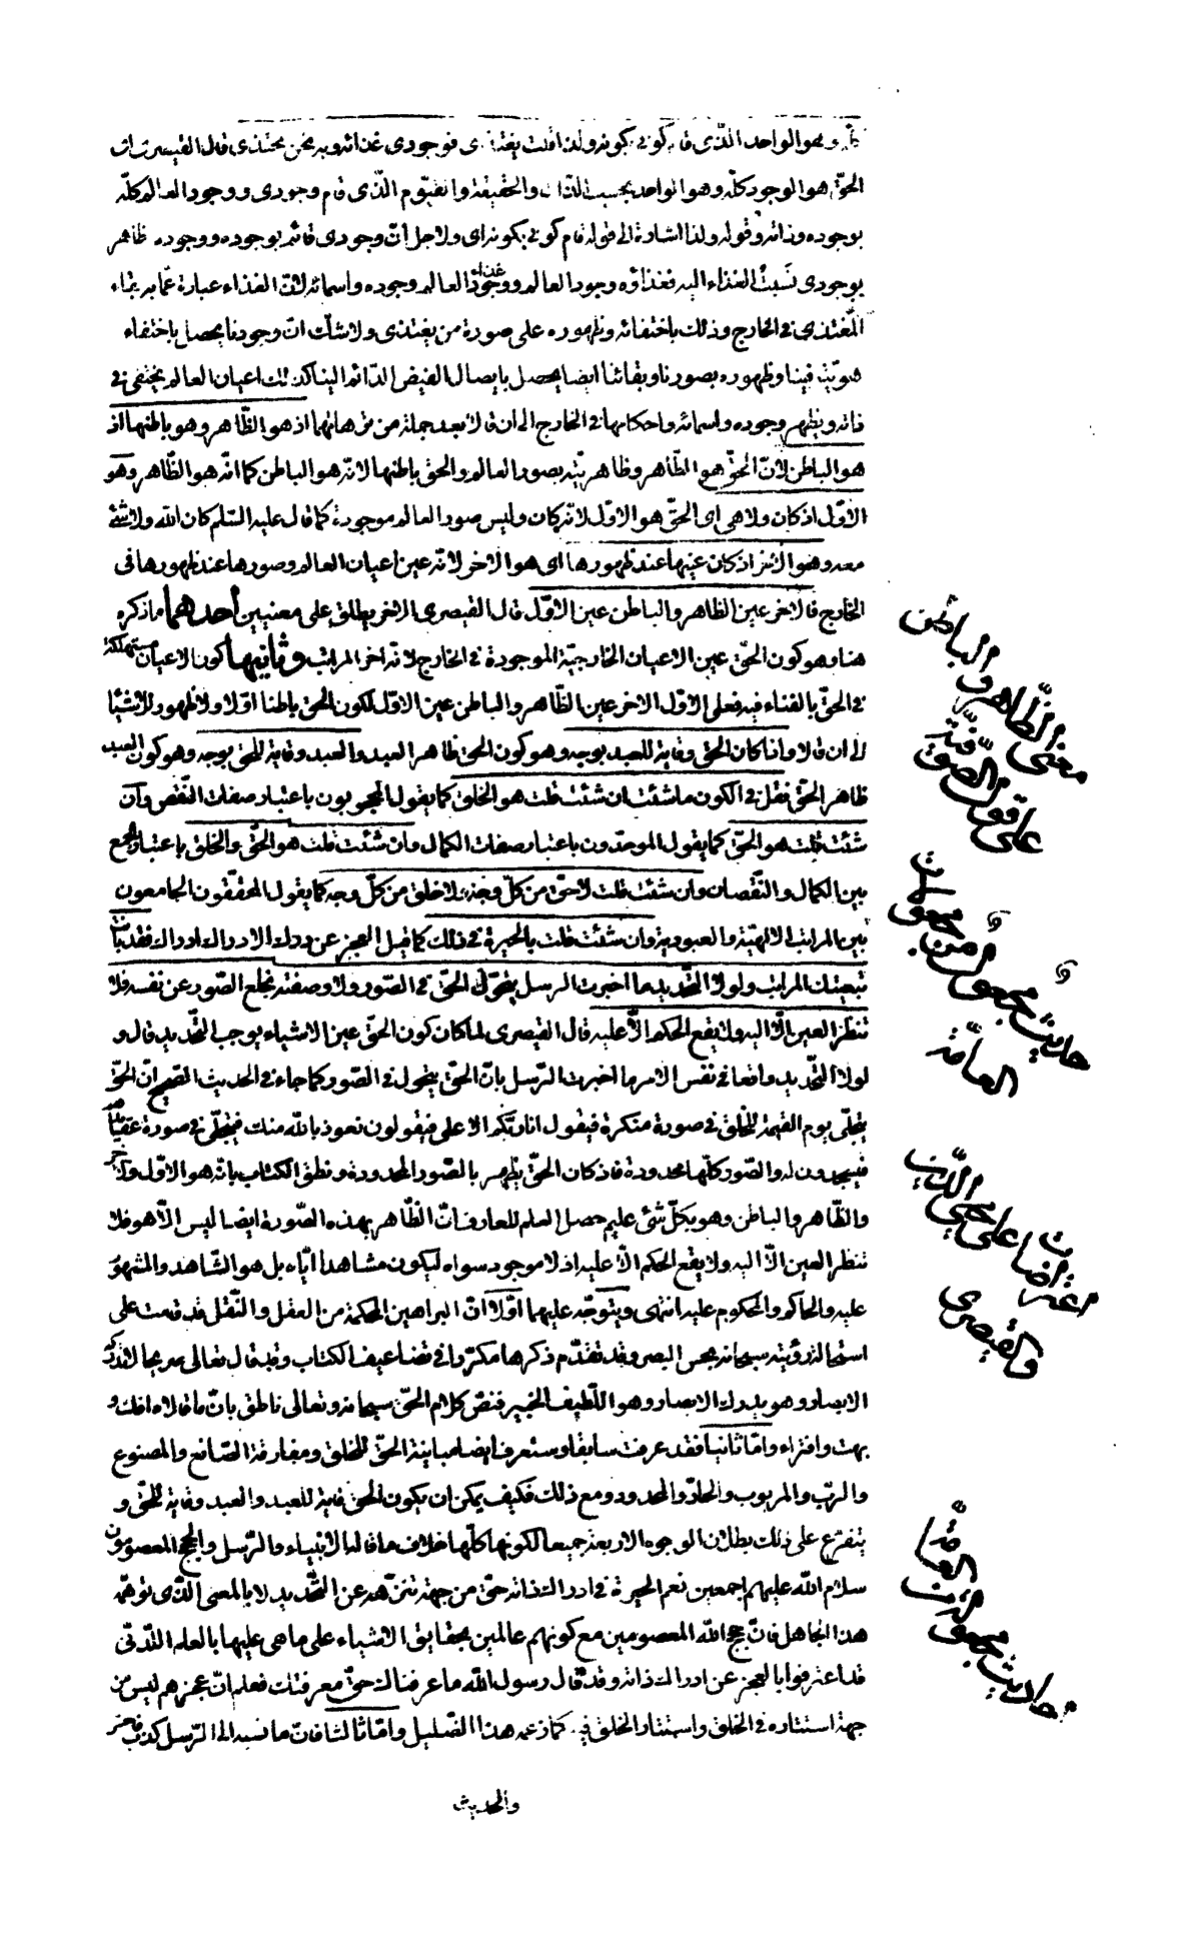 وهو الواحد الّذى قام كونى بكونه ولذا قلت يغتذى فوجودى غذائه وبه نحن نحتذى قال القيصرى ان
الحقّ هو الوجود كلّه وهو الواحد بحسب الذّات والحقيقة والقيّوم الّذى قام وجودى ووجود العالم كلّه
بوجوده وذاته وقوله ولذا اشارة الى قوله قام كونى بكونه اى ولاجل انّ وجودى قائم بوجوده ووجوده ظاهر
بوجودى نسبتُ الغذاء اليه فغذاؤه وجود العالم ووجود غذاء العالم وجوده واسمائه لانّ الغذاء عبارة عمّا به بقاء
المُغتذى فى الخارج وذلك باختفائه وظهوره على صورة من يغتذى ولا شكّ انّ وجودنا يحصل باختفاء
هويّته فينا وظهوره بصورنا وبقائنا ايضا يحصل بايصال الفيض الدّائم الينا كذلك اعيان العالم يختفى فى
ذاته ويظهر وجوده واسمائه واحكامها فى الخارج الى ان قالا بعد جملة من ترّهاتهما اذ هو الظّاهر وهو باطنها اذ
هو الباطن لانّ الحقّ هو الظّاهر وظاهريّته بصور العالم والحقّ باطنها لانّه هو الباطن كما انّه هو الظّاهر وهو
الاوّل اذ كان ولا هى اى الحقّ هو الاوّل لانّه كان وليس صور العالم موجودة كما قال عليه السّلم كان الله ولا شئ
معه وهو الآخر اذ كان عينها عند ظهورها اى هو الاخر لانّه عين اعيان العالم وصورها عند ظهورها فى
الخارج فالاخر عين الظاهر والباطن عين الاوّل قال القيصرى الاخر يطلق على معنيين أحدهما ما ذكره
هنا وهو كون الحقّ عين الاعيان الخارجيّة الموجودة فى الخارج لانّه اخر المراتب وثانيها كون الاعيان مستهلكة
فى الحقّ بالفناء فيه فعلى الاوّل الاخر عين الظّاهر والباطن عين الاوّل لكون الحقّ باطنا اوّلا ولا ظهور للاشيا
الى ان قالا ولنا كان الحقّ وقاية للعبد بوجه وهو كون الحقّ ظاهر العبد والعبد وقاية للحقّ بوجه وهو كون العبد
ظاهر الحقّ فقل فى الكون ما شئت ان شئت قلت هو الخلق كما يقول المحجوبون باعتبار صفات النّقص وان
شئت قلت هو الحقّ كما يقول الموحّدون باعتبار صفات الكمال وان شئت قلت هو الحقّ والخلق باعتبار الجمع
بين الكمال والنّقصان وان شئت قلت لا حقّ من كلّ وجه ولا خلق من كلّ وجه كما يقول المحقّقون الجامعون
بين المراتب الالهيّة والعبوديّة وان شئت قلت بالحيرة فى ذلك كما قيل العجز عن درك الادراك ادراك فقد بان
تبعيتك المراتب ولولا التّحديد ما اخبرت الرسل بتحوّل الحقّ فى الصّور ولا وصفته بخلع الصّور عن نفسه فلا
تنظر العين الّا اليه ولا يقع الحكم الّا عليه قال القيصرى لما كان كون الحقّ عين الاشياء يوجب التّحديد قال و
لولا التّحديد واقعا فى نفس الامر ما اخبرت الرّسل بانّ الحقّ يتحول فى الصّور كما جاء فى الحديث الصّحيح انّ الحقّ
يتجلّى يوم القيمة للخلق فى صورة منكرة فيقول انا ربّكم الاعلى فيقولون نعوذ بالله منك فيتجلّى فى صورة عقائدهم
فيسجدون له والصّور كلّها محدودة فاذ كان الحقّ يظهر بالصّور المحدودة ونطق الكتاب بانّه هو الاوّل والاخر
والظّاهر والباطن وهو بكلّ شئ عليم حصل العلم للعارف انّ الظّاهر بهذه الصّورة ايضا ليس الّا هو فلا
تنظر العين الّا اليه ولا يقع الحكم الّا عليه اذ لا موجود سواه ليكون مشاهدا ايّاه بل هو الشّاهد والمشهود
عليه والحاكم والمحكوم عليه انتهى ويتوجّه عليهما اوّلا انّ البراهين المحكمة من العقل والنّقل قد قامت على
استحالة رؤيته سبحانه بحسّ البصر وقد تقدّم ذكرها مكرّرا فى تضاعيف الكتاب وقد قال تعالى صريحا لا تدركه
الابصار وهو يدرك الابصار وهو اللّطيف الخبير فنصّ كلام الحقّ سبحانه وتعالى ناطق بانّ ما قالاه افك و
بهت وافتراء وامّا ثانيا فقد عرفت سابقا وستعرف ايضا مباينة الحقّ للخلق ومفارقة الصّانع والمصنوع
والربّ والمربوب والحادّ والمحدود ومع ذلك فكيف يمكن ان يكون الحقّ وقاية للعبد والعبد وقاية للحقّ و
يتفرّع على ذلك بطلان الوجوه الاربعة جميعا لكونها كلّها خلاف ما قاله الانبياء والرّسل والحجج المعصومون
سلام الله عليهم اجمعين نعم الحيرة فى ادراك ذاته حقّ من جهة تنزّهه عن التّحديد لا بالمعنى الّذى توهّمه
هذا الجاهل فانّ حجج الله المعصومين مع كونهم عالمين بحقايق الاشياء على ما هى عليها بالعلم اللّدنّى
قد اعترفوا بالعجز عن ادراك ذاته وقد قال رسول الله ما عرفناك حقّ معرفتك فعلم انّ عجزهم ليس من
جهة استتاره فى الخلق واستتار الخلق فيه كما زعمه هذا الضّليل وامّا ثالثا فانّ ما نسبه الى الرّسل كذب
والحديث
معنى الظّاهر والباطن
على قول الصّوفيّة
حاديث مجعول من مجعولات
العامّة
اعتراضات على محيى الدّين
والقيصرى
حاديث مجعولات
العامّة